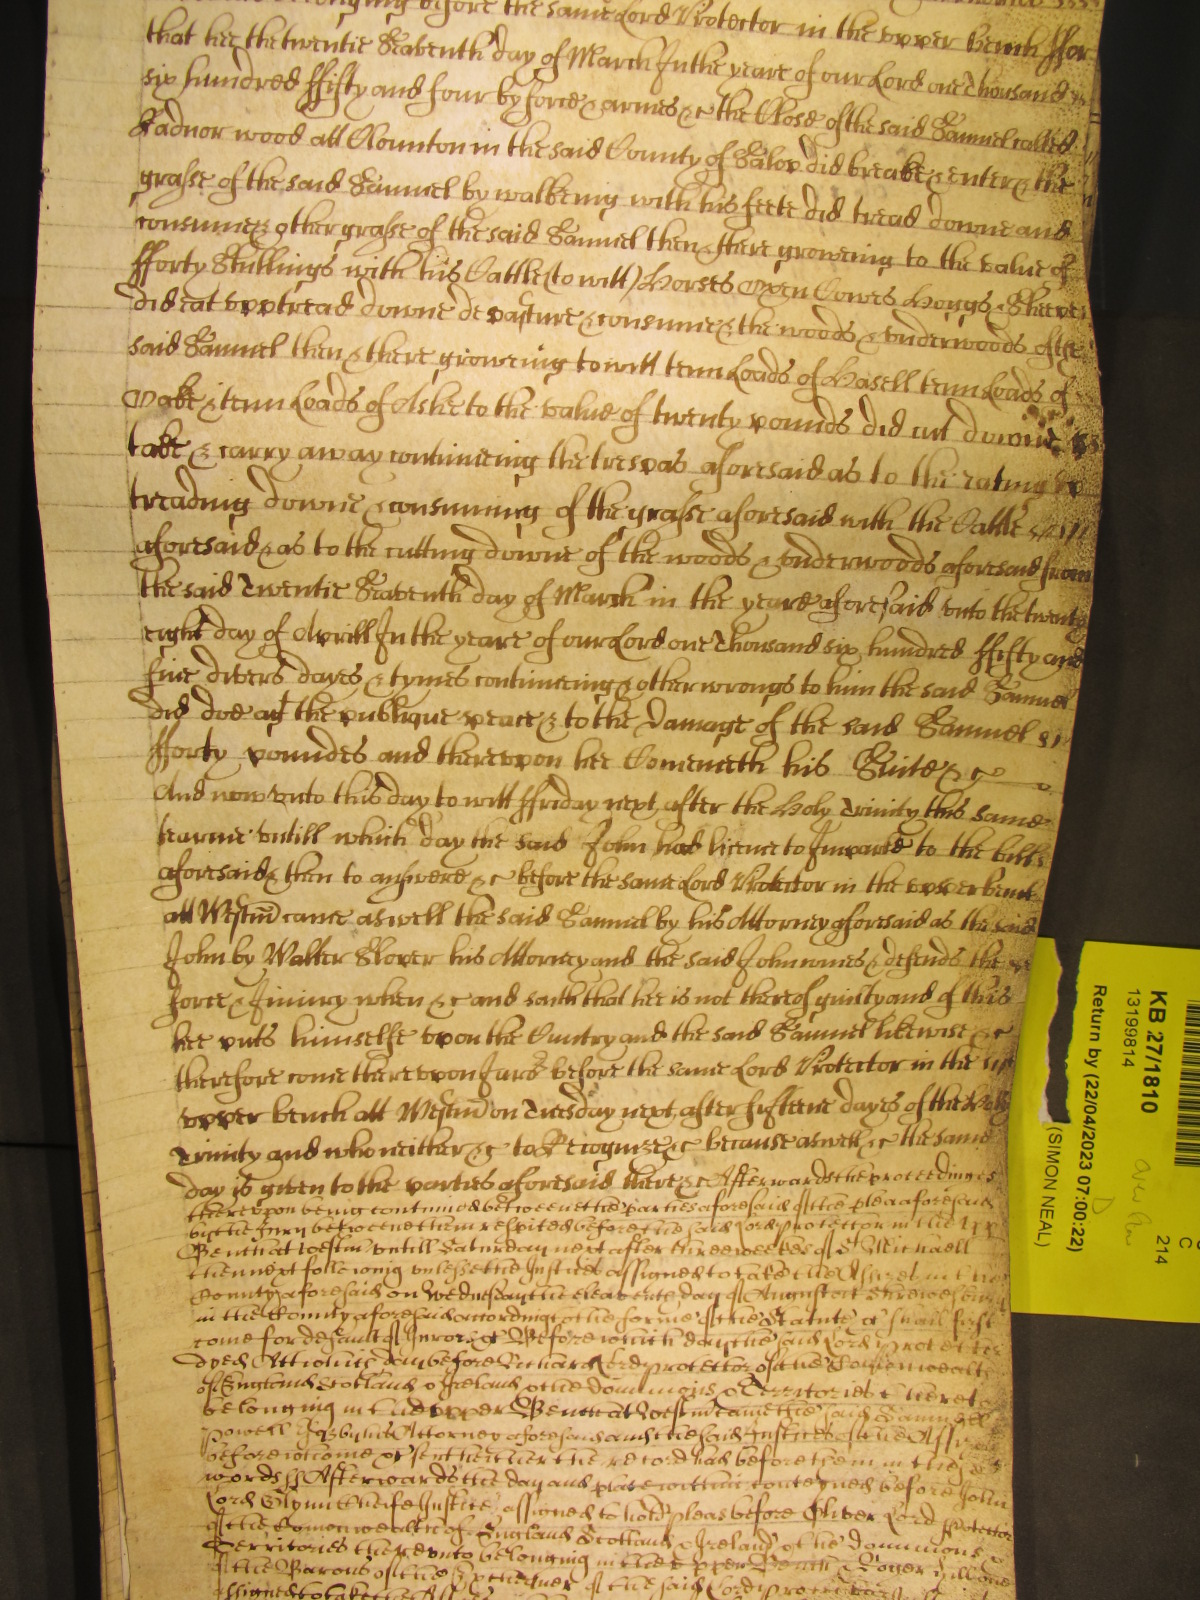 belonging before the same Lord Protector in the upper bench ffor
that hee the twentie Seaventh day of March In the yeare of our Lord one Thousand
six hundred ffifty and four by force & armes &c the Close of the said Samuel called
Radnor wood att Clounton in the said County of Salop did breake & enter & the
grasse of the said Samuel by walkeing with his feete did tread downe and
consume & other grasse of the said Samuel then & there groweing to the value of
fforty Shillings with his Cattle (to witt) Horses Oxen Cowes Hoggs & Sheepe
did eat upp tread downe depasture & consume & the woods & underwoods of the
said Samuel then & there groweing to witt tenn Loads of Hasell tenn Loads of
Oake & tenn Loads of Ashe to the value of twenty pounds did cut downe
take & carry away continueing the trespas aforesaid as to the eating up
treading downe & consuming of the grasse aforesaid with the Cattle
aforesaid & as to the cutting downe of the woods & underwoods aforesaid from
the said Twentie Seaventh day of March in the yeare aforesaid unto the twenty
eight day of Aprill In the yeare of our Lord one Thousand six hundred ffifty and
five divers dayes & tymes continueing & other wrongs to him the said Samuel
did doe agt the publique peace & to the damage of the said Samuel
fforty poundes and thereupon hee bringeth his Suite &c
And now unto this day to witt ffriday next after the Holy Trinity this same
tearme untill which day the said John had licence to Imparle to the bill
aforesaid & then to answere &c before the same Lord Protector in the upper bench
att Westmr came aswell the said Samuel by his Attorney aforesaid as the said
John by Walter Slover his Attorney and the said John comes & defends the
force & Iniury when &c and saith that hee is not thereof guilty and of this
hee puts himselfe upon the Cuntry and the said Samuel likewise &c
therefore come thereupon Jurs before the same Lord Protector in the
upper bench att Westmr on Tuesday next after fifteene dayes of the Holy
Trinity and who neither &c to Recognize &c because aswell &c the same
day is given to the parties aforesaid there &c Afterwards the proceedings
thereupon being continued betweene the parties aforesaid of the plea aforesaid
by the Jury betweene them respited before the said Lord protector in the Upp
Bench at Westmr untill Saturday next after three weekes of St Michaell
then next following unlesse the Justices assigned to take the Assizes in the
County aforesaid on Wednesday the eleventh day of August at Shrewsbury
in the County aforesaid according to the forme of the Statute &c shall first
come for default of Jurors &c Before which day the said Lord protector
dyed Att which day before Richard Lord protector of the Comonwealth
of England Scotland & Ireland & the dominions & Territories thereto
belonging in the upper Bench at Westmr came the said Samuell
Powell by his Attorney aforesaid and the said Justices of the Assizes
before whome &c sent hither their record had before them in these
words ss Afterwards the day and place within conteyned before John
Lord Glynn Cheife Justice assigned to hold pleas before Oliver Lord protector
of the Comonwealth of England Scotland & Ireland & the dominions &
Territories thereunto belonging in the Upper Bench & Roger Hill one
of the Barons of the Exchequer of the said Lord protector
assigned to take the
KB 27/1810
13199814
Return by (22/04/2023 07:00:22)
(SIMON NEAL)
D
C
214